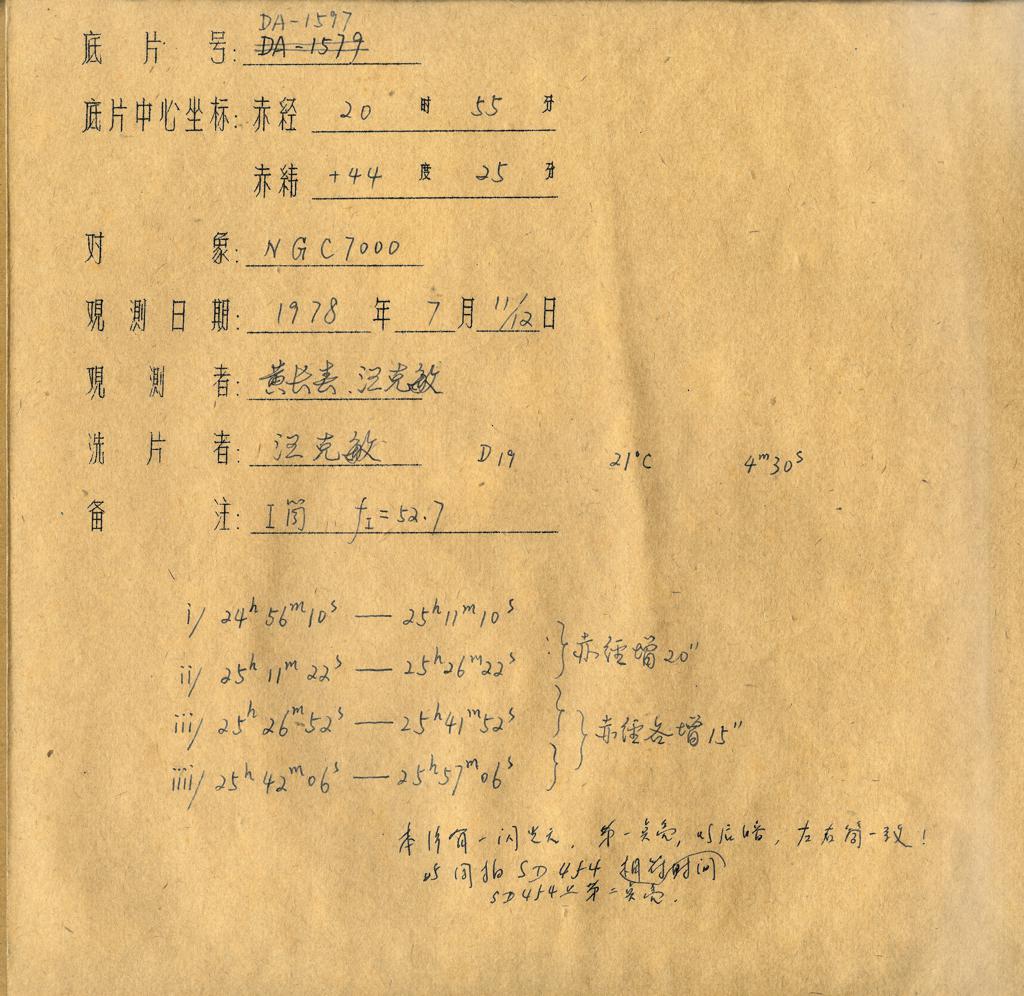 DA-1597
底片号: DA-1579
底片中心坐标: 赤经 20 时 55 分
赤纬 +44 度 25 分
对象: NGC7000
观测日期: 1978 年 7 月 11/12 日
观测者: 黄长春 汪克敏
洗片者: 汪克敏 D19 21°C 4ᵐ30ˢ
备注: I筒 f_I=52.7
i/ 24ʰ56ᵐ10ˢ — 25ʰ11ᵐ10ˢ
ii/ 25ʰ11ᵐ22ˢ — 25ʰ26ᵐ22ˢ
赤经增20"
iii/ 25ʰ26ᵐ52ˢ — 25ʰ41ᵐ52ˢ
赤经各增15"
iiii/ 25ʰ42ᵐ06ˢ — 25ʰ57ᵐ06ˢ
本片有一闪光点, 第一点亮, 以后暗, 左右筒一致!
同拍 SD454 相对时间
SD454 第二点亮.